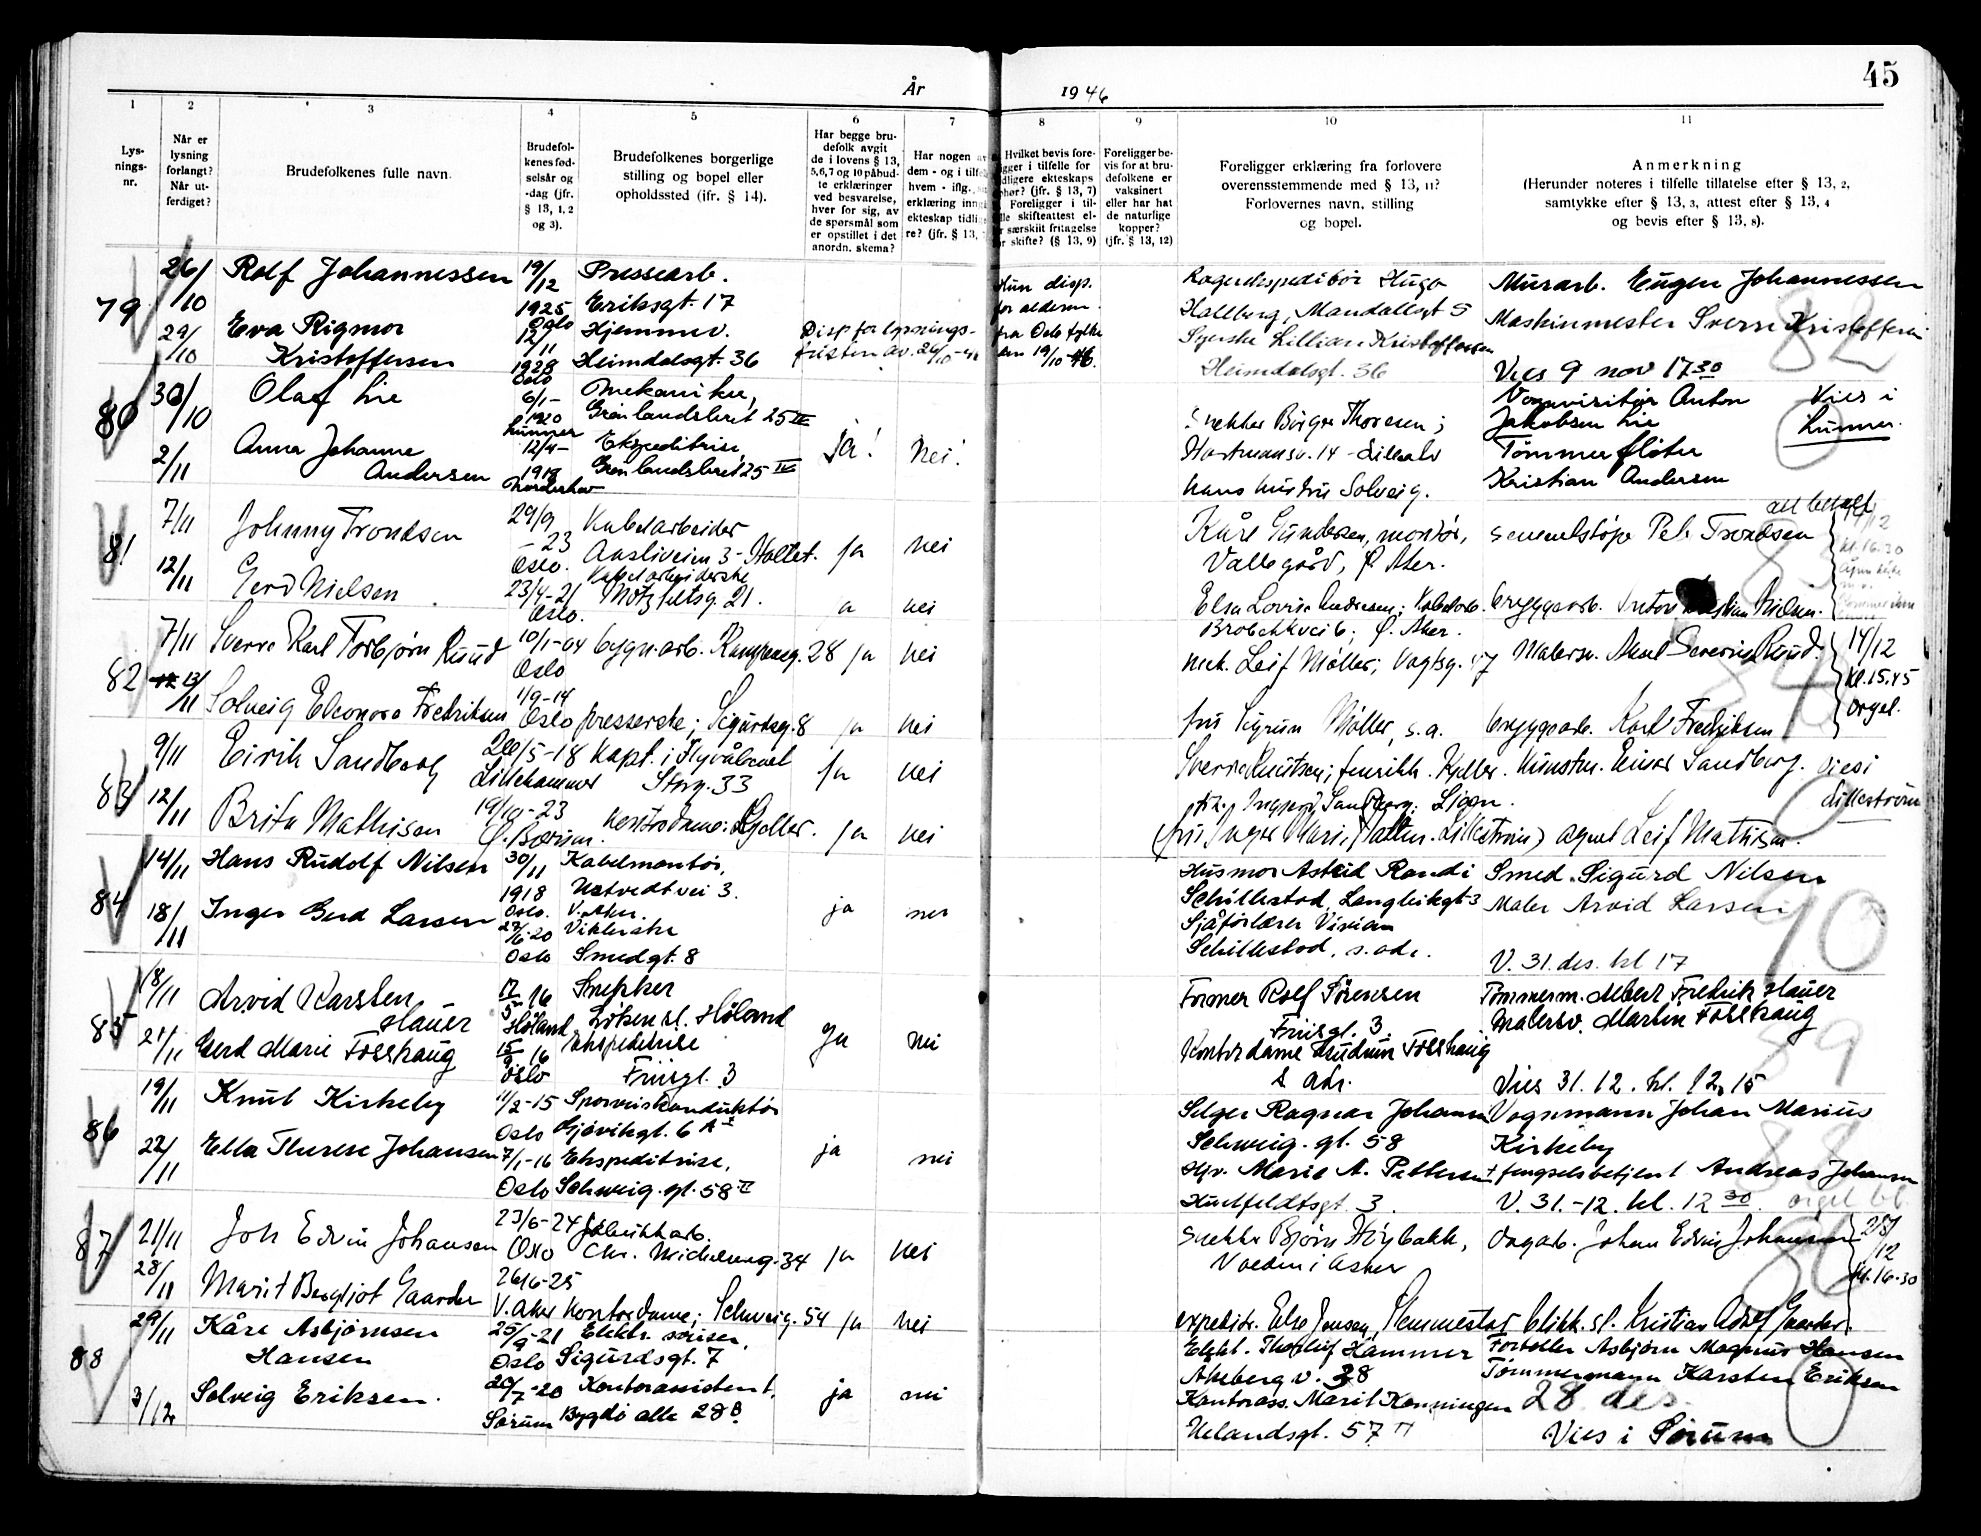 År 1946
45
1 2 3 4 5 6 7 8 9 10 11
Lys-
nings-
nr.
Når er
lysning
forlangt?
Når ut-
ferdiget?
Brudefolkenes fulle navn.
Brudefol-
kenes fød-
selsår og
-dag (jfr.
§ 13, 1, 2
og 3).
Brudefolkenes borgerlige
stilling og bopel eller
opholdssted (ifr. § 14).
Har begge bru-
defolk avgit
de i lovens § 13,
5,6,7 og 10 påbud-
te erklæringer
ved besvarelse,
hver for sig, av
de spørsmål som
er opstillet i det
anordn. skema?
Har nogen av
dem - og i tilfe
hvem - iflg.
erklæring inng
ekteskap tidlig
re? (jfr. § 13,
Hvilket bevis fore-
ligger i tilfelle for
dligere ekteskaps
phør? (jfr. § 13, 7)
Foreligger i til-
lle skifteattest el-
r særskilt fritagelse
r skifte? (§ 13, 9)
Foreligger be-
vis for at bru-
defolkene er
vaksinert
eller har hat
de naturlige
kopper?
(jfr. § 13, 12)
Foreligger erklæring fra forlovere
overensstemmende med § 13, 11?
Forlovernes navn, stilling
og bopel.
Anmerkning
(Herunder noteres i tilfelle tillatelse efter § 13, 2,
samtykke efter § 13, 3, attest efter § 13, 4
og bevis efter § 13, 8).
79
26/10 Rolf Johannessen 19/12 1925 Oslo Pressearb.
Eriksgt. 17
29/10 Eva Rigmor
Kristoffersen 12/11 1928 Oslo Hjemmev.
Heimdalsgt. 36
Disp for lysnings-
fristen av. 26/10-46
Hun disp.
for alderen
fra Oslo fylke
den 19/10-46.
Lagerekspeditør Hugo
Hallberg, Mandallsgt 5
Syerske Lillian Kristoffersen
Heimdalsgt. 36
Murarb. Eugen Johannessen
Maskinmester Sverre Kristoffersen
Vies 9 nov 17 30
82
80
30/10 Olaf Lie 6/1- 1920 Lunner Mekaniker,
Grønlandsleret 25 IV
2/11 Anna Johanne
Andersen 12/4- 1918 Norderhov Ekspeditrise,
Grønlandsleret 25 IV
Ja! Nei!
Snekker Birger Thoresen;
Hartmansv. 14 - Lilleaker
hans hustru Solveig.
Vognvisitør Anton
Jakobsen Lie
Tømmerfløter
Kristian Andersen
Vies i
Lunner.
81
7/11 Johnny Trondsen 29/9 - 23 Oslo. Kabelarbeider
Aasliveien 3 - Holtet. ja nei
12/11 Gerd Nielsen 23/4-21 Oslo. Kabelarbeiderske
Motzfeltsg. 21. nei
Kåre Gundersen, montør,
Vallegård, Ø. Aker.
Elsa Lovise Andresen; Kabelarb.
Brobekkvei 6; Ø. Aker.
Trondsen
alt betalt
14/12
kl. 16.30
bryggearb. Nielsen.
82
7/11 Sverre Karl Torbjørn Ruud 10/1-04 Oslo bygn.arb. Kampensg. 28 ja nei
13/11 Solveig Eleonora Fredriksen 1/9-14 Oslo presserske; Sigurdsg. 8 ja nei
mek. Leif Møller; Vogtsg. 47
fru Sigrun Møller, s.a.
Malersv. Aksel Severin Ruud.
bryggearb. Karl Fredriksen
14/12
kl. 15.45
orgel.
83
9/11 Eirik Sandberg 26/5-18 Lillehammer Kapt. i Flyvåbenet
Storg. 33 ja nei
12/11 Brita Mathisen 19/10-23 Ø. Bærum. kontordame: Kjeller. ja nei
Sverre Knutsen; fenrikk. Kjeller.
Ingjerd Sandberg; Ligon.
(fru Inger Marie Lillestrøm) agent Leif Mathisen.
Einar Sandberg.
Vies i
Lillestrøm
84
14/11 Hans Rudolf Nilsen 30/11 1918 Oslo. Kabelmontør,
Ustvedtvei 3.
V. Aker.
18/11 Inger Gerd Larsen 27/6-20 Oslo Viklerske
Smedgt. 8
ja nei
Husmor Astrid Randi
Schillestad, Langleikgt 3
Sjåførlærer Vivian
Schillestad, s. adr.
Smed. Sigurd Nilsen
Maler Arvid Larsen
V. 31. des. kl 17
90
85
18/11 Arvid Karsten
Hauer 17/5 16 Høland Snekker
Løken st. Høland
21/11 Gerd Marie Fosshaug 15/9 16 Oslo Ekspeditrise
Friisgt. 3
ja nei
Former Rolf Sørensen
Friisgt. 3.
Kontordame Gudrun Fosshaug
s adr.
Tømmerm. Albert Fredrik Hauer
Malersv. Martin Fosshaug
Vies 31. 12. kl. 12,15
89
86
19/11 Knut Kirkeby 11/2-15 Oslo Sporveiskonduktør
Gjøvikgt. 6 A I
22/11 Ella Therese Johansen 7/1-16 Oslo Ekspeditrise,
Schweig. gt. 58 II
ja nei
Selger Ragnar Johansen
Schweig. gt. 58
Hjv. Marie A. Pettersen
Huitfeldtsgt. 3.
Vognmann Johan Marius
Kirkeby
+ fengselsbetjent Andreas Johansen
V. 31.-12. kl. 12 30. orgel bl.
88
87
21/11 Joh Edvin Johansen 23/6-24 Oslo fabrikkarb.
Chr. Michelsensg. 34 ja nei
28/11 Marit Bergljot Gaarder 26/6-25 V. Aker kontordame; Schweig. 54 ja nei
Snekker Bjørn Høybakk,
Vollen i Asker
expeditr. Else Jensen, Slemmestad
Johan Edvin Johansen
blikk. sl. Kristian Adolf Gaarder.
28/12
kl. 16.30
88
29/11 Kåre Asbjørnsen
Hansen 25/9-21 Oslo Elektr. sveiser,
Sigurdsgt. 7
3/12 Solveig Eriksen. 20/7-20 Sørum Kontorassistent,
Bygdø alle 28 B
ja nei
Elekt. Thorleif Hammer
Akeberg v. 38
Kontorass. Marit Kenningen
Uelandsgt. 57 II
Forteller Asbjørn Magnus Hansen
Tømmermann Karsten Eriksen
28 des.
Vies i Sørum